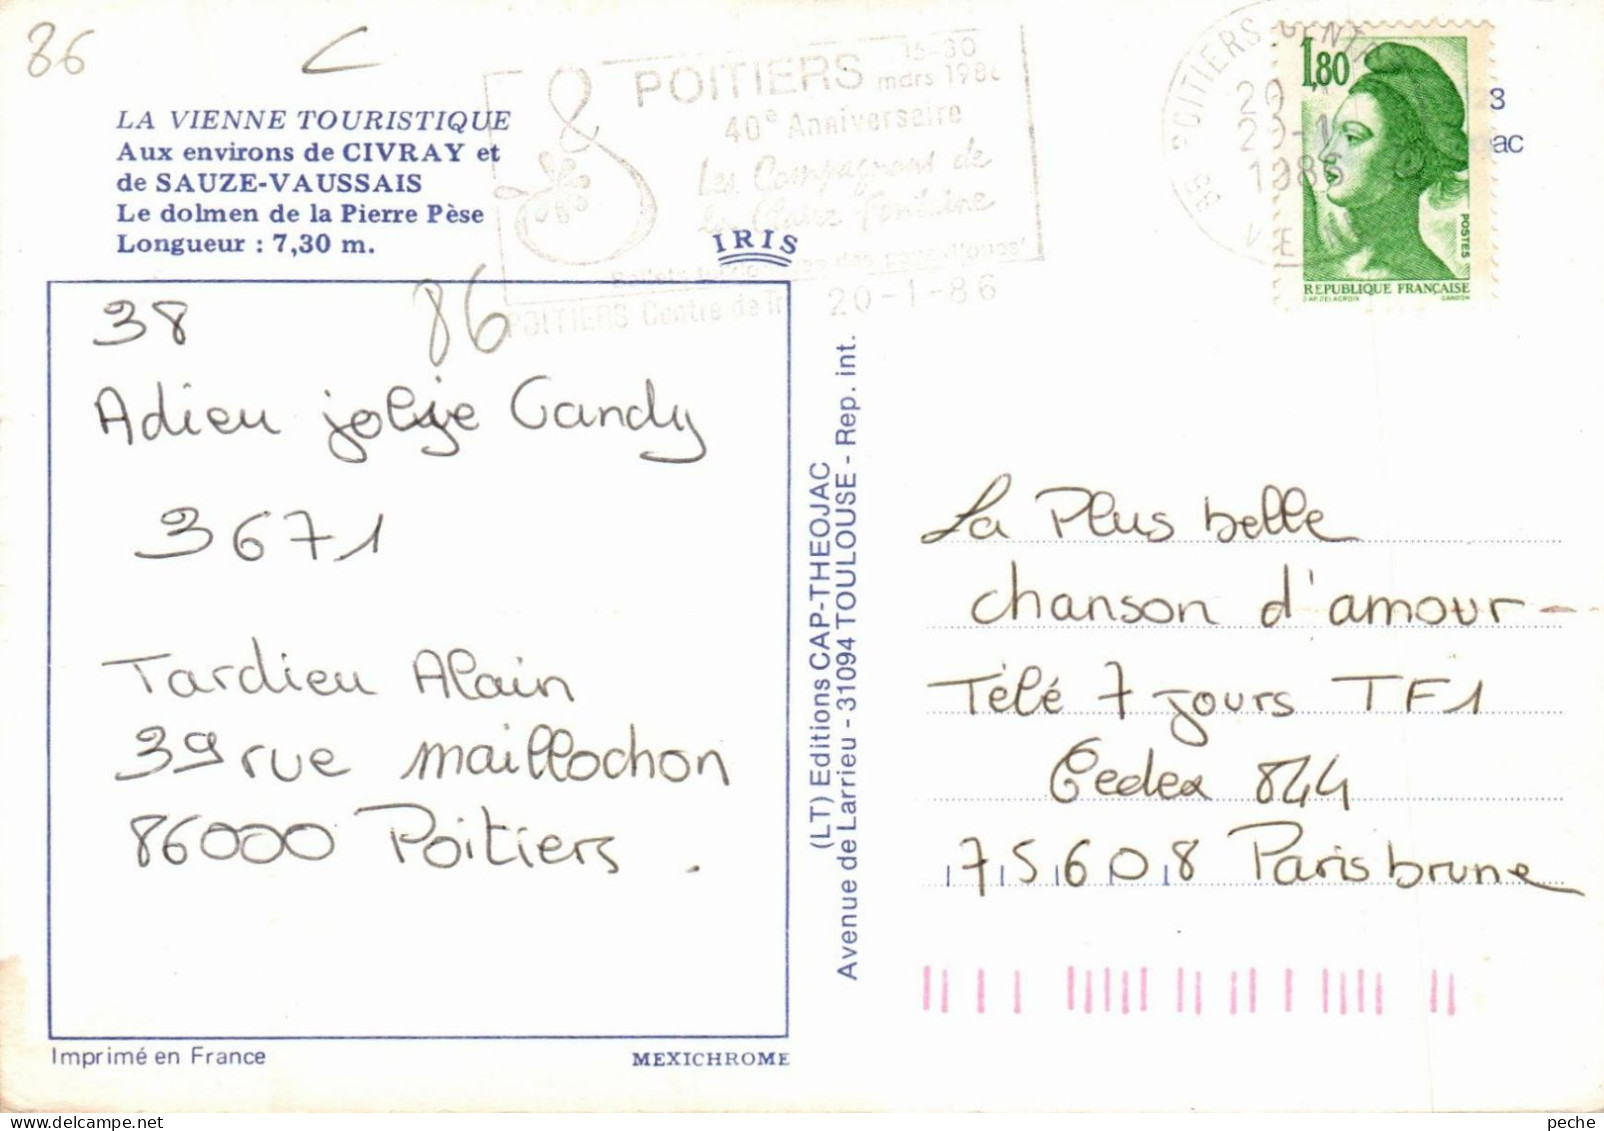 86
LA VIENNE TOURISTIQUE
Aux environs de CIVRAY et
de SAUZE-VAUSSAIS
Le dolmen de la Pierre Pèse
Longueur : 7,30 m.
IRIS
15-30
POITIERS mars 1986
40e Anniversaire
Les Compagnons de
la Claire Fontaine
POITIERS Centre de Tri 20-1-86
86 POITIERS
1986
1,80
POSTES
REPUBLIQUE FRANÇAISE
D'AP. DELACROIX GANDON
38
86
Adieu jolie Candy
3671
Tardieu Alain
39 rue maillochon
86000 Poitiers.
(LT) Editions CAP-THEOJAC
Avenue de Larrieu - 31094 TOULOUSE - Rep. int.
La Plus belle
chanson d'amour
Télé 7 jours TF1
Cedex 844
75608 Paris brune
Imprimé en France
MEXICHROME
peche